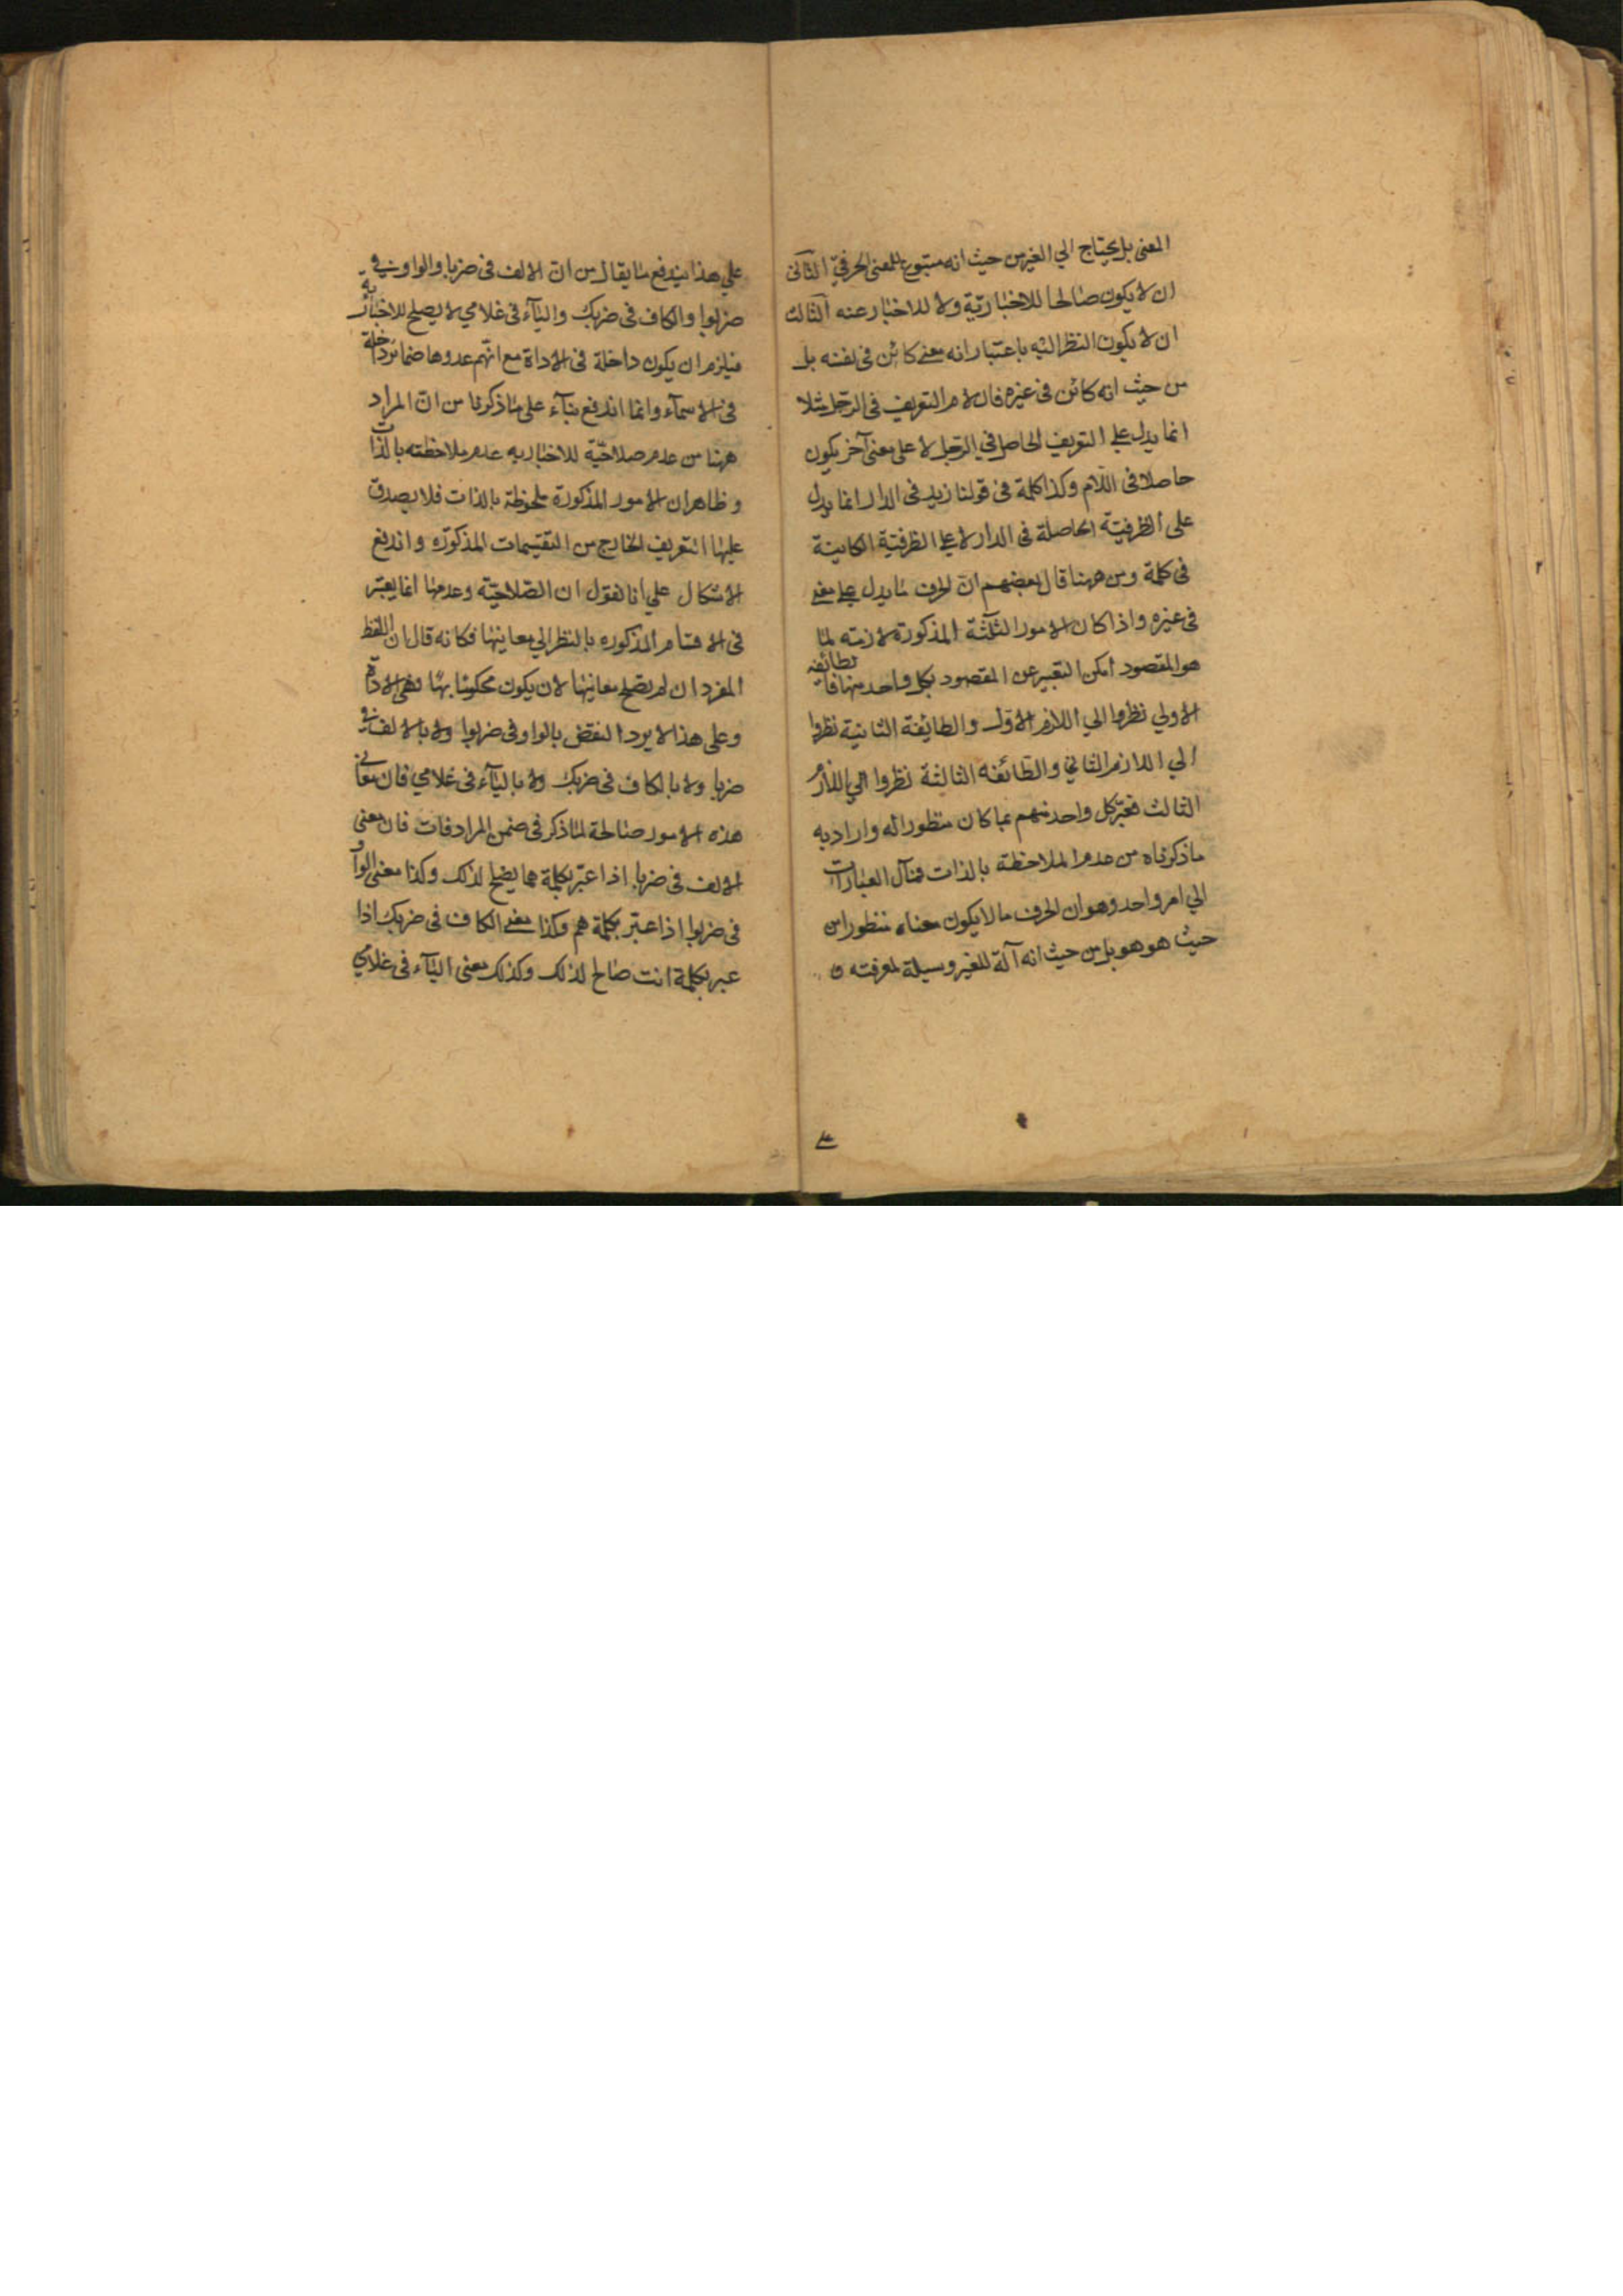 المعنى بل يحتاج الي الغير من حيث انه متبوع للمعنى الحرفيّ الثاني
ان لا يكون صالحا للاخبار به ولا للاخبار عنه الثالث
ان لا يكون النظر اليه باعتبار انه معنى كائن فى نفسه بل
من حيث انه كائن فى غيره فان لام التعريف فى الرجل مثلا
انما يدل على التعريف الحاصل في الرجل لا على معنى آخر يكون
حاصلا فى اللام وكذا كلمة فى قولنا زيد فى الدار انما يدل
على الظرفية الحاصلة فى الدار لا على الظرفية الكاينة
فى كلمة ومن ههنا قال بعضهم انّ الحرف ما يدل على معنى
فى غيره واذا كان الامور الثلثة المذكورة لازمته لما
هو المقصود امكن التعبير عن المقصود بكل واحد منها فالطائفه
الاولي نظروا الي اللازم الاول والطايفة الثانية نظروا
الي اللازم الثاني والطائفه الثالثة نظروا الي اللازم
الثالث فعبّر كل واحد منهم عما كان منظورا له واراد به
ماذكرناه من عدم الملاحظة بالذات فمآل العبارات
الي امر واحد وهو ان الحرف ما لا يكون معناه منظورا من
حيث هو هو بل من حيث انه آلة للغير وسيلة لمعرفته و
على
علي هذا يندفع ما يقال من انّ الالف فى ضربا والواو فى
ضربوا والكاف فى ضربك والياء فى غلامي لا يصلح للاخبار به
فيلزم ان يكون داخلة فى الاداة مع انهم عدوها ضمائر داخلة
فى الاسمآء وانما اندفع بنآء على ماذكرنا من انّ المراد
ههنا من عدم صلاحيّة للاخبار به عدم ملاحظته بالذات
وظاهر ان الامور المذكورة ملحوظة بالذات فلا يصدق
عليها التعريف الخارج من التقسيمات المذكورة واندفع
الاشكال علي انا نقول ان الصّلاحيّة وعدمها انما يعتبر
فى الاقسام المذكوره بالنظر الي معانيها فكانه قال ان اللفظ
المفرد ان لم تصلح معانيها لان يكون محكوما بها فهى الاداة
وعلى هذا لا يرد النقض بالواو فى ضربوا ولا بالالف فى
ضربا ولا بالكاف فى ضربك ولا باليآء فى غلامي فان معاني
هذه الامور صالحة لما ذكر فى ضمن المرادفات فان معنى
الالف فى ضربا اذا عبّر بكلمة هما يصلح لذلك وكذا معنى الواو
فى ضربوا اذا عبّر بكلمة هم وكذا معنى الكاف فى ضربك اذا
عبر بكلمة انت صالح لذلك وكذلك معنى اليآء فى غلامي